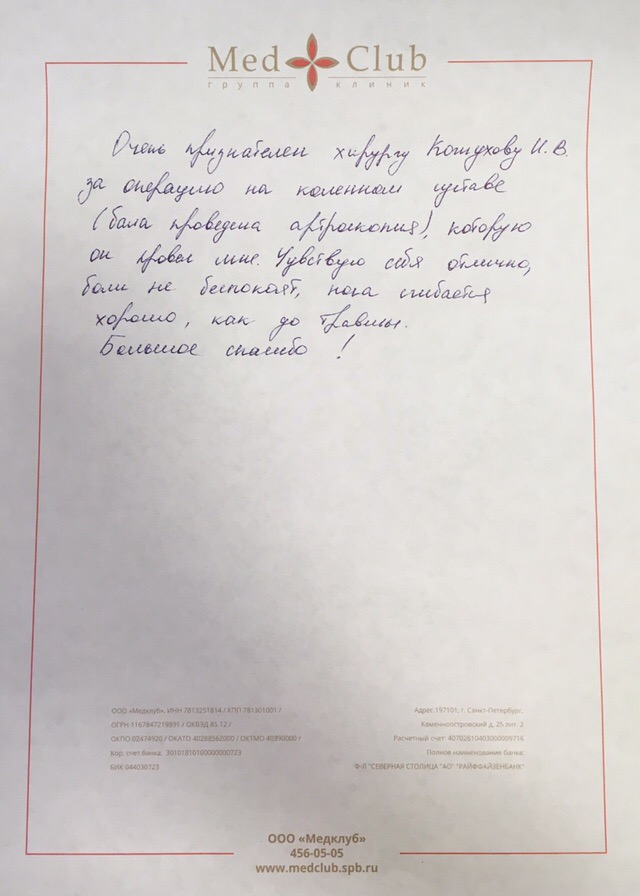 Med Club
группа клиник
Очень признателен хирургу Кожухову И.В.
за операцию на коленном суставе
(была проведена артроскопия), которую
он провёл мне. Чувствую себя отлично,
боли не беспокоят, нога сгибается
хорошо, как до травмы.
Большое спасибо !
ООО «Медклуб». ИНН 7813251814 / КПП 781301001 /
ОГРН 1167847219891 / ОКВЭД 85.12 /
ОКПО 02474920 / ОКАТО 40288562000 / ОКТМО 40390000 /
Кор. счет банка: 30101810100000000723
БИК 044030723
Адрес:197101, г. Санкт-Петербург,
Каменноостровский д. 25 лит. 2
Расчетный счет: 40702810403000009716
Полное наименование банка:
Ф-Л "СЕВЕРНАЯ СТОЛИЦА "АО" "РАЙФФАЙЗЕНБАНК"
ООО «Медклуб»
456-05-05
www.medclub.spb.ru